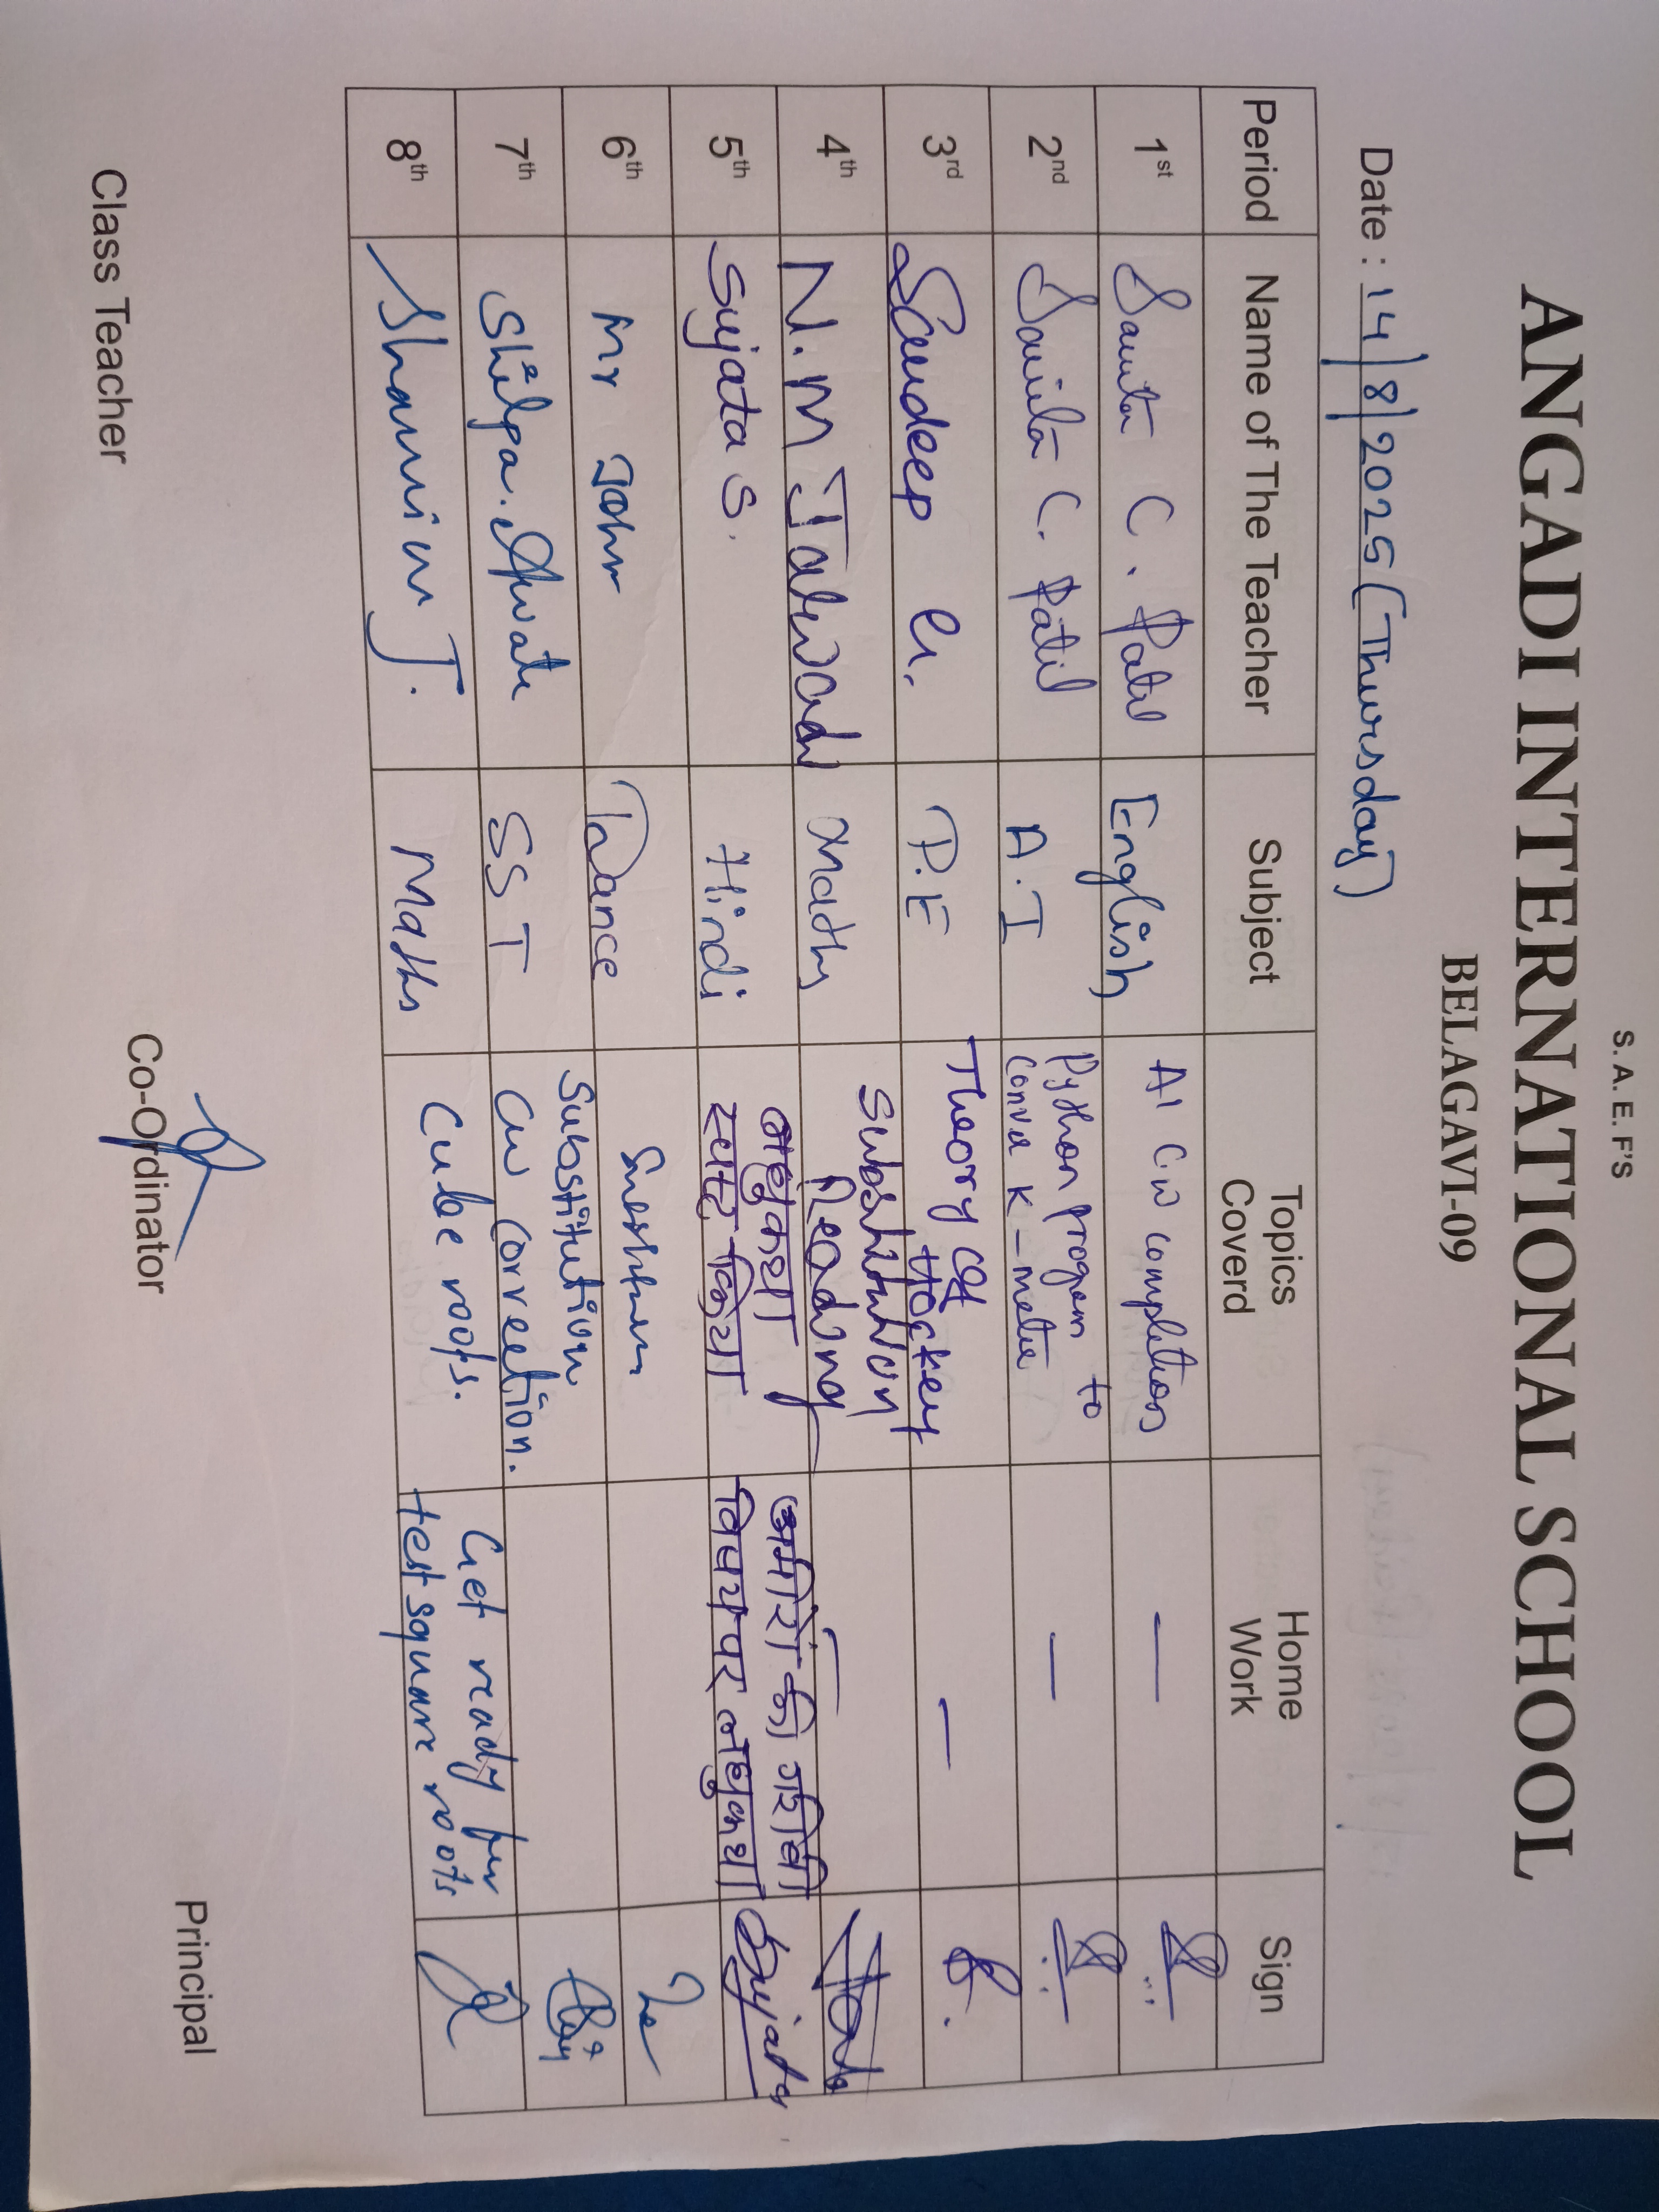 S. A. E. F'S
ANGADI INTERNATIONAL SCHOOL
BELAGAVI-09
Date : 14/8/2025 (Thursday)
Period Name of The Teacher Subject Topics Coverd Home Work Sign
1st Savita C. Patil English AI C.W completion —
2nd Savita C. Patil A.I Python program to
K-meter —
3rd Sandeep G. P.E Theory of Hockey —
4th N.M Jalwadi Maths Substitution
Reading —
5th Sujata S. Hindi लघुकथा अमीरों की गरीबी
स्पष्ट किया विषय पर लघुकथा Sujata
6th Mr John Dance
Substitution
7th Shilpa. SST CW Correction.
8th J. Maths Cube roots. Get ready for
test square roots
Class Teacher Co-Ordinator Principal